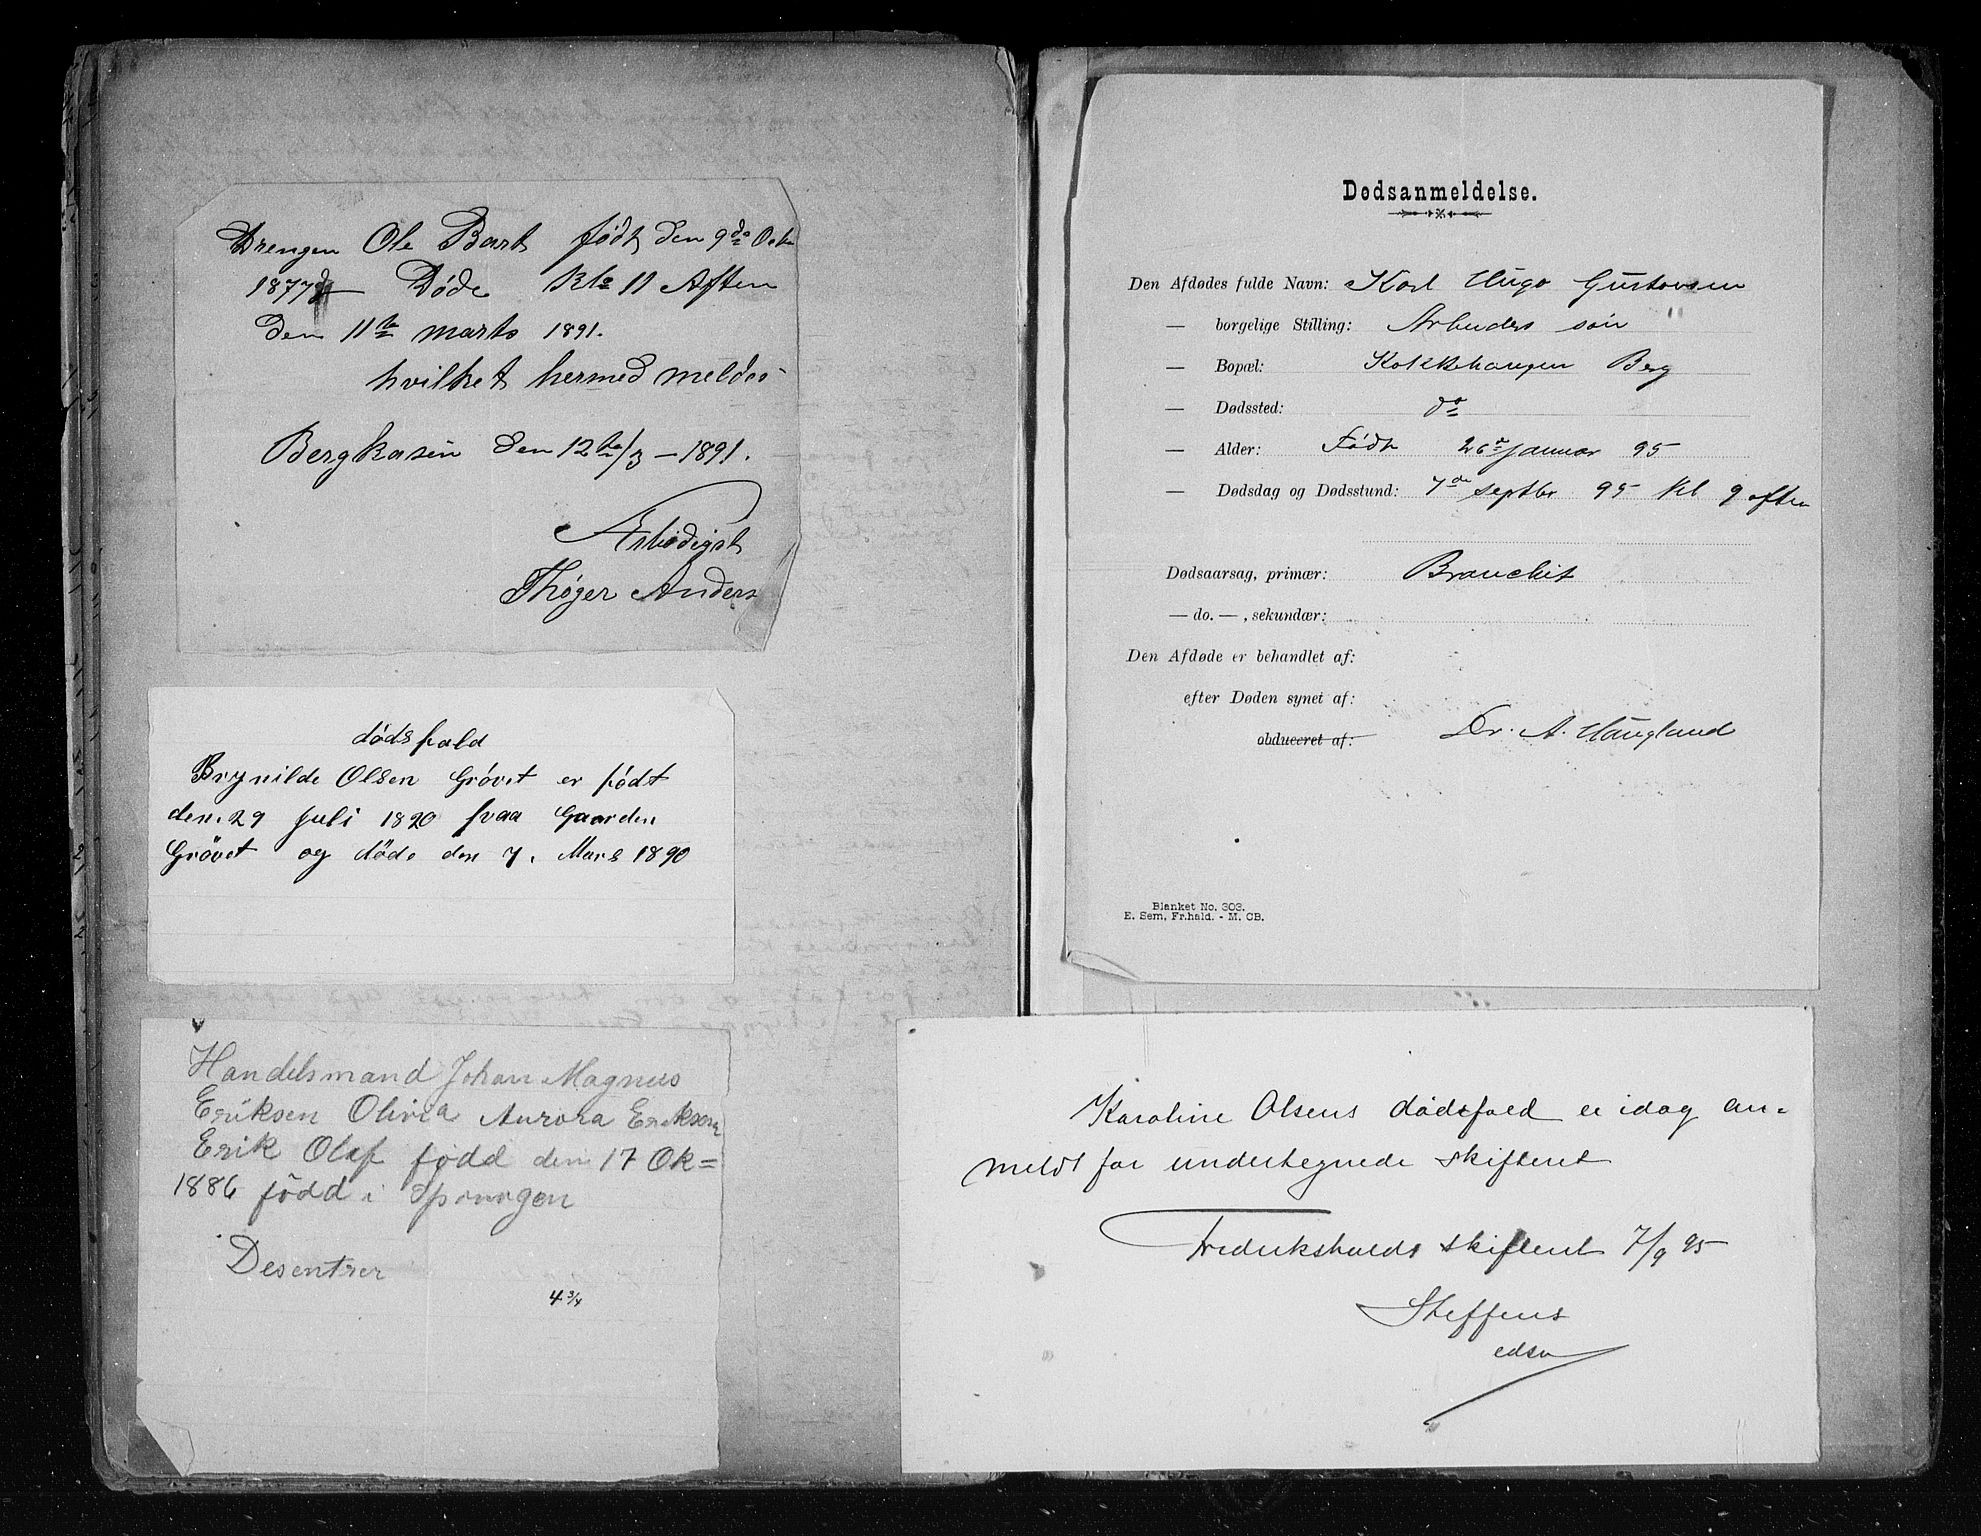 Drengen Ole Bart født den 9de Octr
1877 Døde Kl 11 Aften
den 11te marts 1891.
hvilket hermed meldes
Berg Kasen den 12te/3 - 1891.
Ærbødigst
Thøger Anders
dødsfald
Brynilde Olsen Grövet er født
den. 29 Juli 1820 paa Gaarden
Grövet og döde den 7. Mars 1890
Handelsmand Johan Magnus
Eriksen Olivia Aurora Eriksen
Erik Olaf född den 17 Ok=
1886 född i
Desentrer
4 3/4
Dødsanmeldelse.
Den Afdødes fulde Navn: Karl Hugo Gustavsen
— borgelige Stilling: Arbeiders søn
— Bopæl: Kokkehaugen Berg
— Dødssted: do
— Alder: Født 26de Januar 95
— Dødsdag og Dødsstund: 7de septbr 95 Kl 9 aften
Dødsaarsag, primær: Bronchit
— do. — , sekundær:
Den Afdøde er behandlet af:
efter Døden synet af:
obduceret af: Dr. A. Haugland
Blanket No. 303.
E. Sem, Fr.hald. - M. CB.
Karoline Olsens dødsfald er idag an-
meldt for undertegnede skifteret
Frederikshalds skifteret 7/9 95
Steffens
edsv